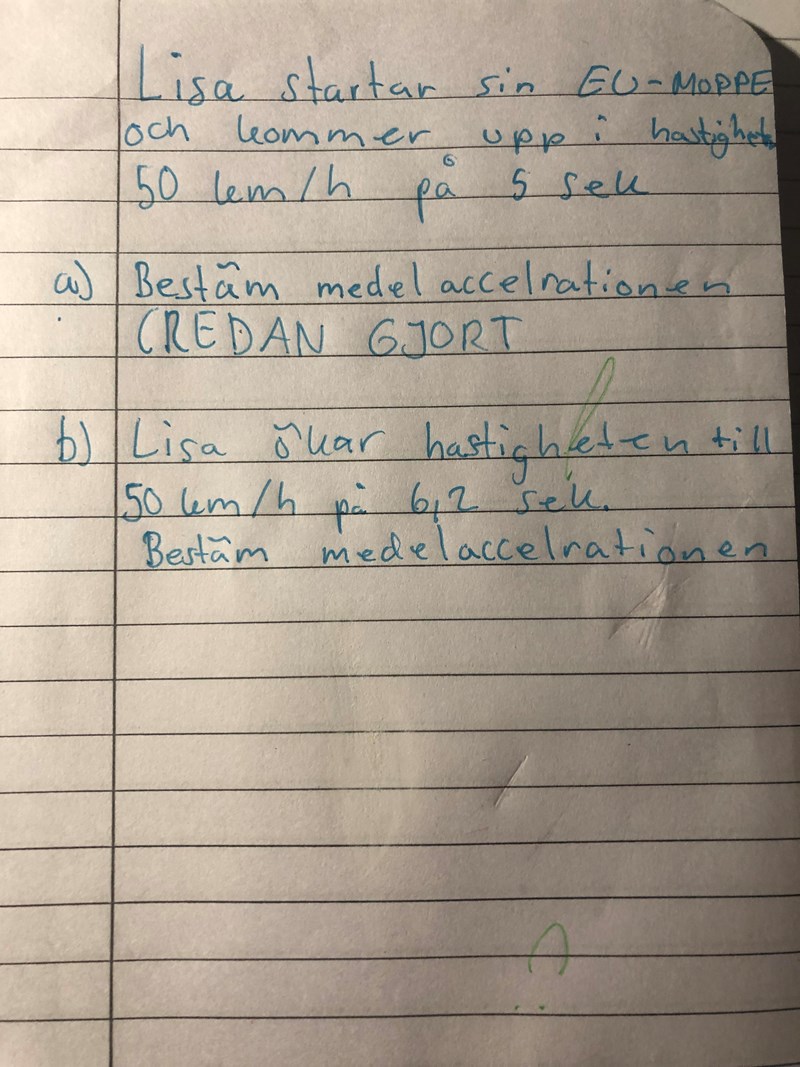 Lisa startar sin EU-MOPPE
och kommer upp i hastighet
50 km/h på 5 sek
a) Bestäm medelaccelrationen
(REDAN GJORT
b) Lisa ökar hastigheten till
50 km/h på 6,2 sek.
Bestäm medelaccelrationen